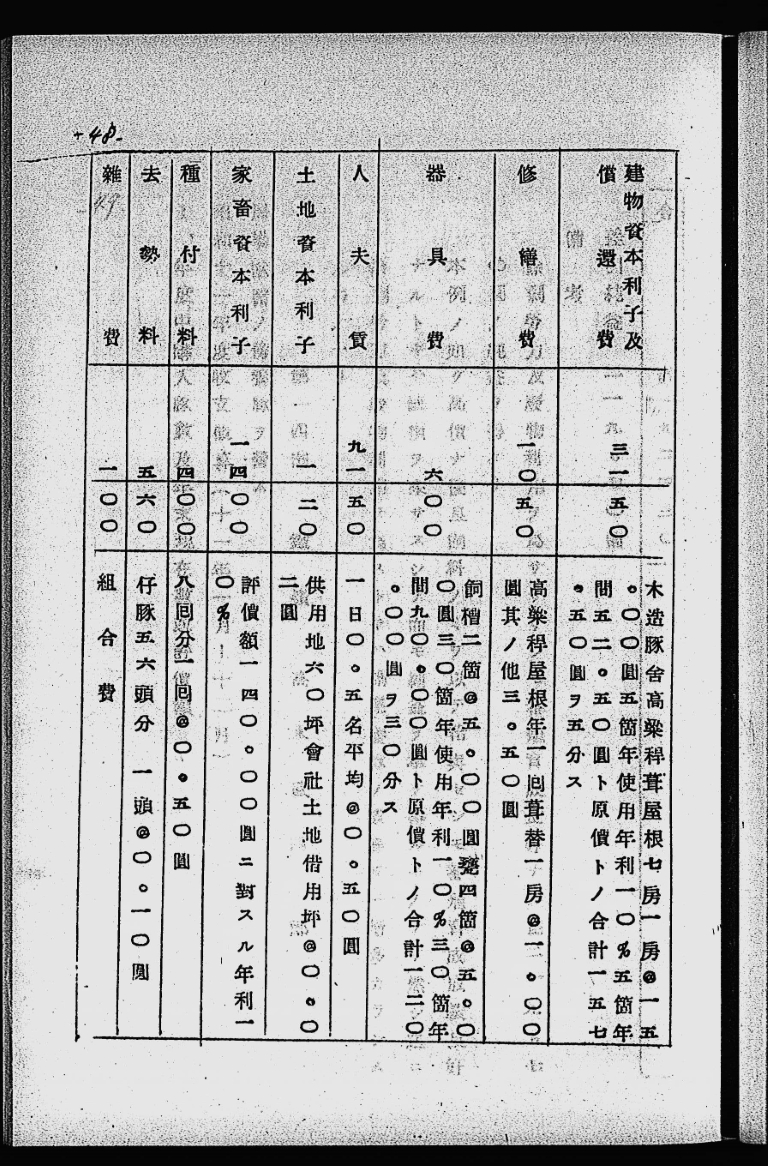 48-
建物資本利子及
償還費
三一五〇
木造豚舍高粱稈葺屋根七房一房@一五
。〇〇圓五箇年使用年利一〇%五箇年
間五二。五〇圓ト原價トノ合計一五七
。五〇圓ヲ五分ス
修繕費
一〇五〇
高粱稈屋根年一囘葺替一房@一。〇〇
圓其ノ他三。五〇圓
器具費
六〇〇
飼槽二箇@五。〇〇圓甕四箇@五。〇
〇圓三〇箇年使用年利一〇%三〇箇年
間九〇。〇〇圓ト原價トノ合計一二〇
。〇〇圓ヲ三〇分ス
人夫賃
九一五〇
一日〇。五名平均@〇。五〇圓
土地資本利子
一二〇
供用地六〇坪會社土地借用坪@〇。〇
二圓
家畜資本利子
一四〇〇
評價額一四〇。〇〇圓ニ對スル年利一
〇%
種付料
四〇〇
八囘分一囘@〇。五〇圓
去勢料
五六〇
仔豚五六頭分 一頭@〇。一〇圓
雜費
一〇〇
組合費